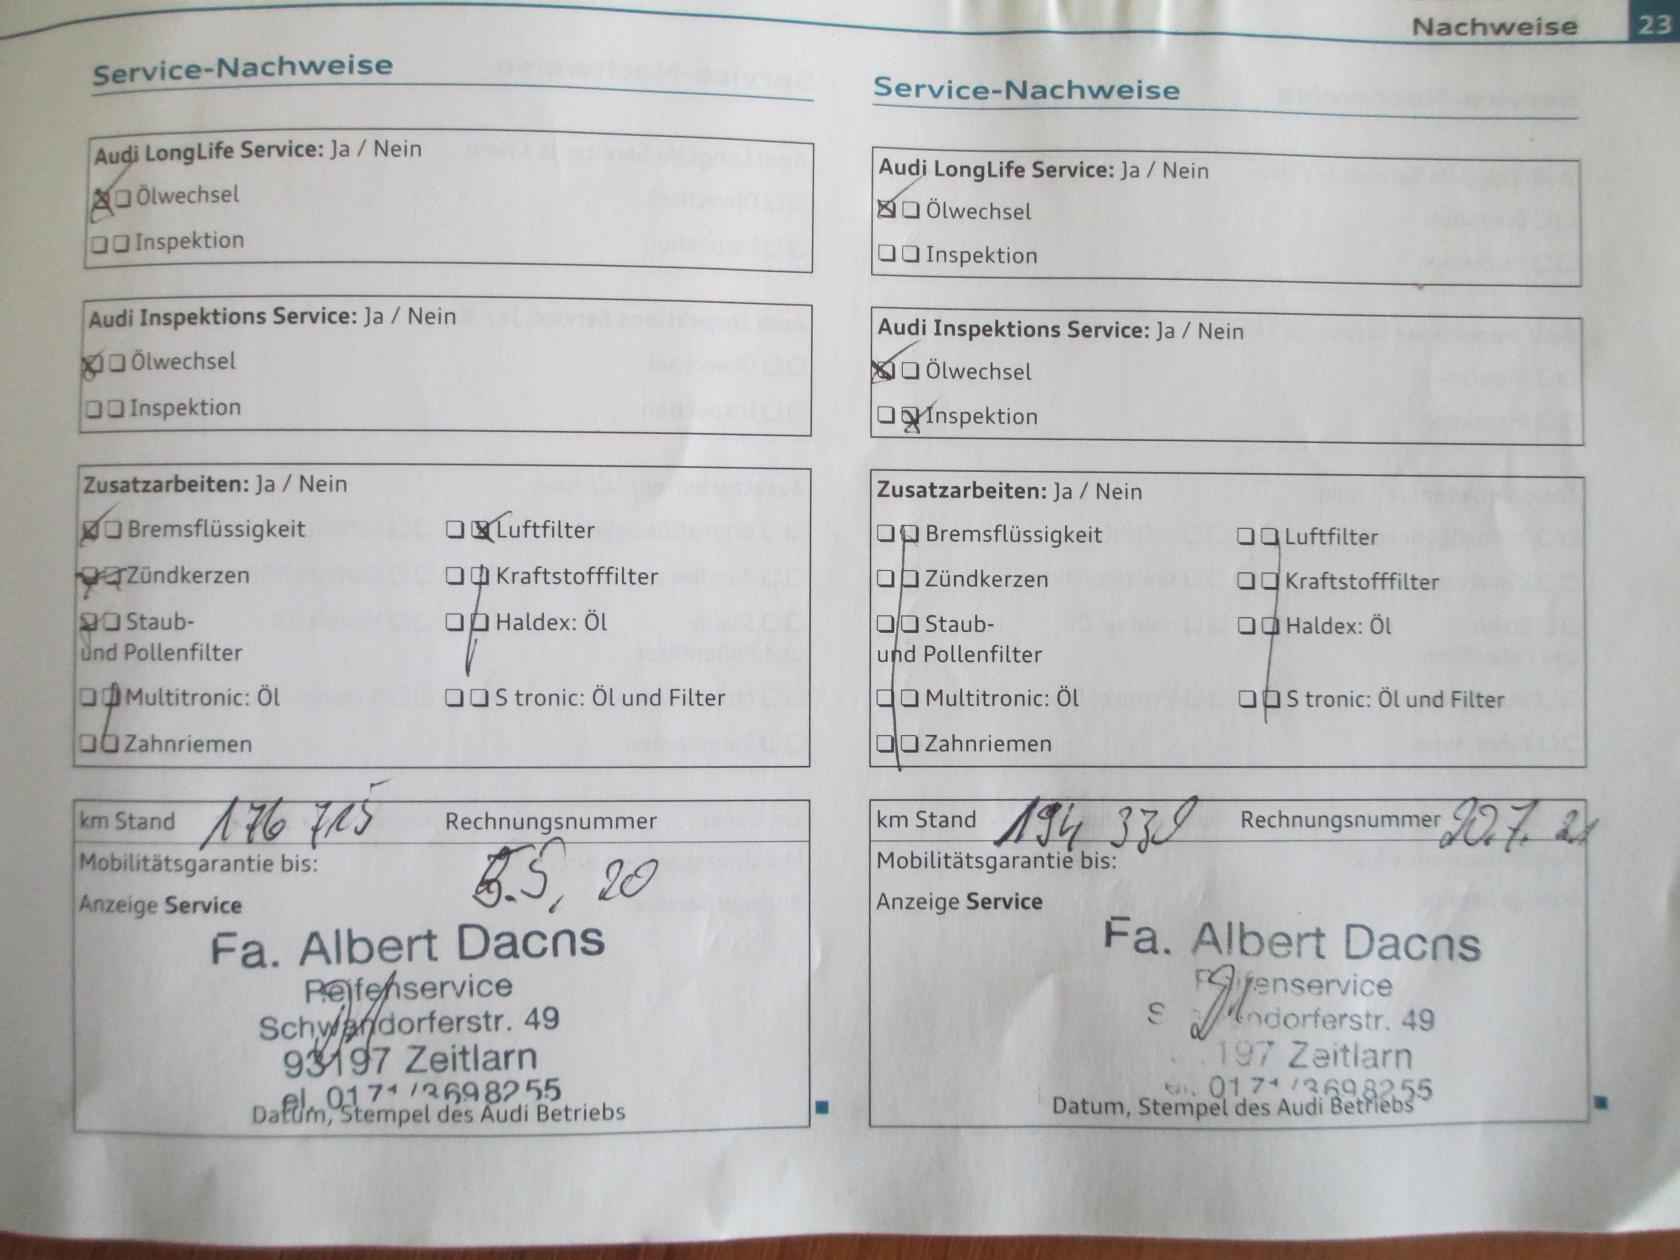 Nachweise 23
Service-Nachweise
Audi LongLife Service: Ja / Nein
Ölwechsel
Inspektion
Audi Inspektions Service: Ja / Nein
Ölwechsel
Inspektion
Zusatzarbeiten: Ja / Nein
Bremsflüssigkeit Luftfilter
Zündkerzen Kraftstofffilter
Staub- Haldex: Öl
und Pollenfilter
Multitronic: Öl S tronic: Öl und Filter
Zahnriemen
km Stand 176 715 Rechnungsnummer
Mobilitätsgarantie bis:
20
Anzeige Service
Fa. Albert Dacns
Reifenservice
Schwandorferstr. 49
93197 Zeitlarn
el. 0171/3698255
Datum, Stempel des Audi Betriebs
Service-Nachweise
Audi LongLife Service: Ja / Nein
Ölwechsel
Inspektion
Audi Inspektions Service: Ja / Nein
Ölwechsel
Inspektion
Zusatzarbeiten: Ja / Nein
Bremsflüssigkeit Luftfilter
Zündkerzen Kraftstofffilter
Staub- Haldex: Öl
und Pollenfilter
Multitronic: Öl S tronic: Öl und Filter
Zahnriemen
km Stand 194 330 Rechnungsnummer 20.7. 21
Mobilitätsgarantie bis:
Anzeige Service
Fa. Albert Dacns
Reifenservice
S ndorferstr. 49
197 Zeitlarn
0171/3698255
Datum, Stempel des Audi Betriebs